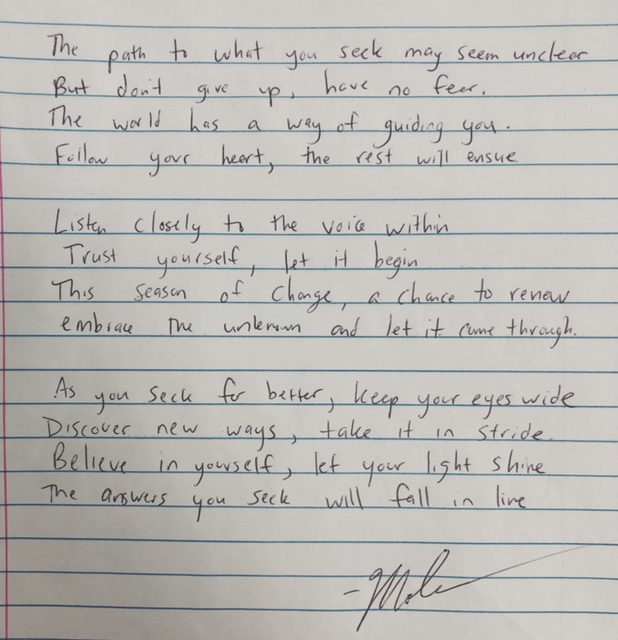 The path to what you seek may seem unclear
But don't give up, have no fear.
The world has a way of guiding you.
Follow your heart, the rest will ensue
Listen closely to the voice within
Trust yourself, let it begin
This season of change, a chance to renew
embrace the unknown and let it come through.
As you seek for better, keep your eyes wide
Discover new ways, take it in stride.
Believe in yourself, let your light shine
The answers you seek will fall in line